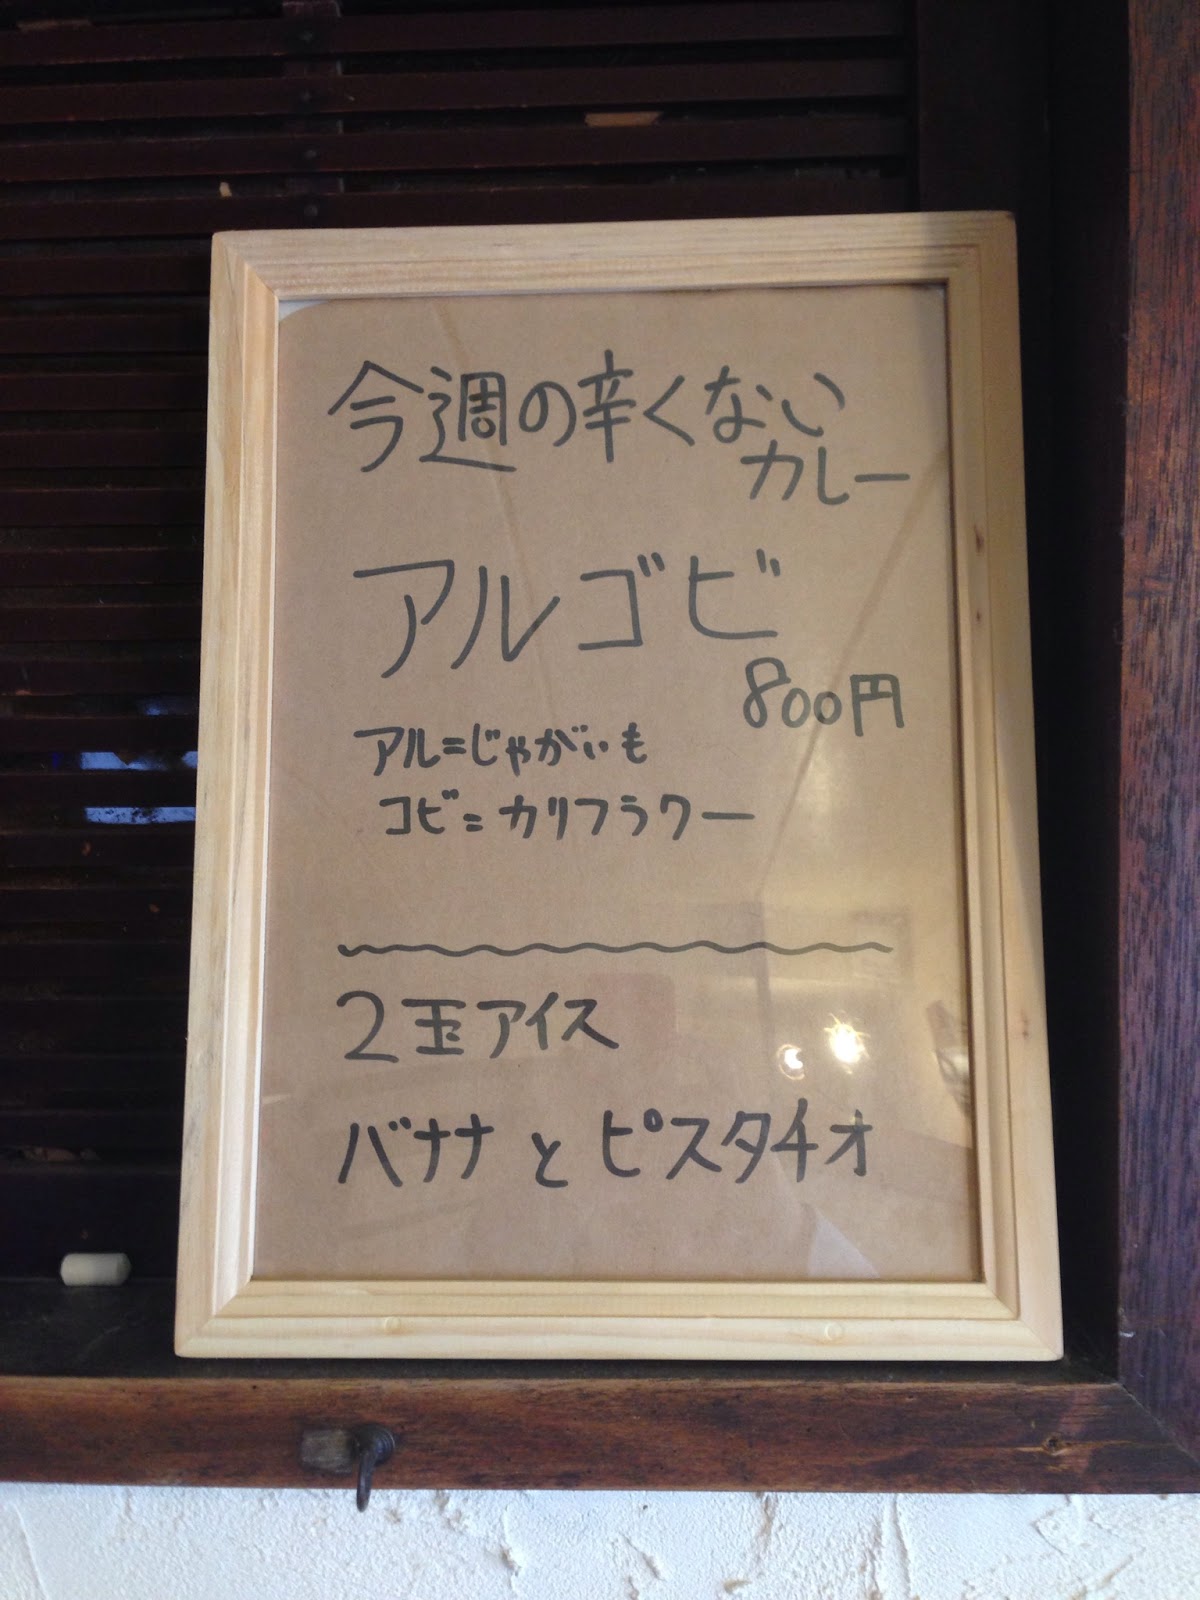 今週の辛くない
カレー
アルゴビ
800円
アル=じゃがいも
コビ=カリフラワー
2玉アイス
バナナとピスタチオ